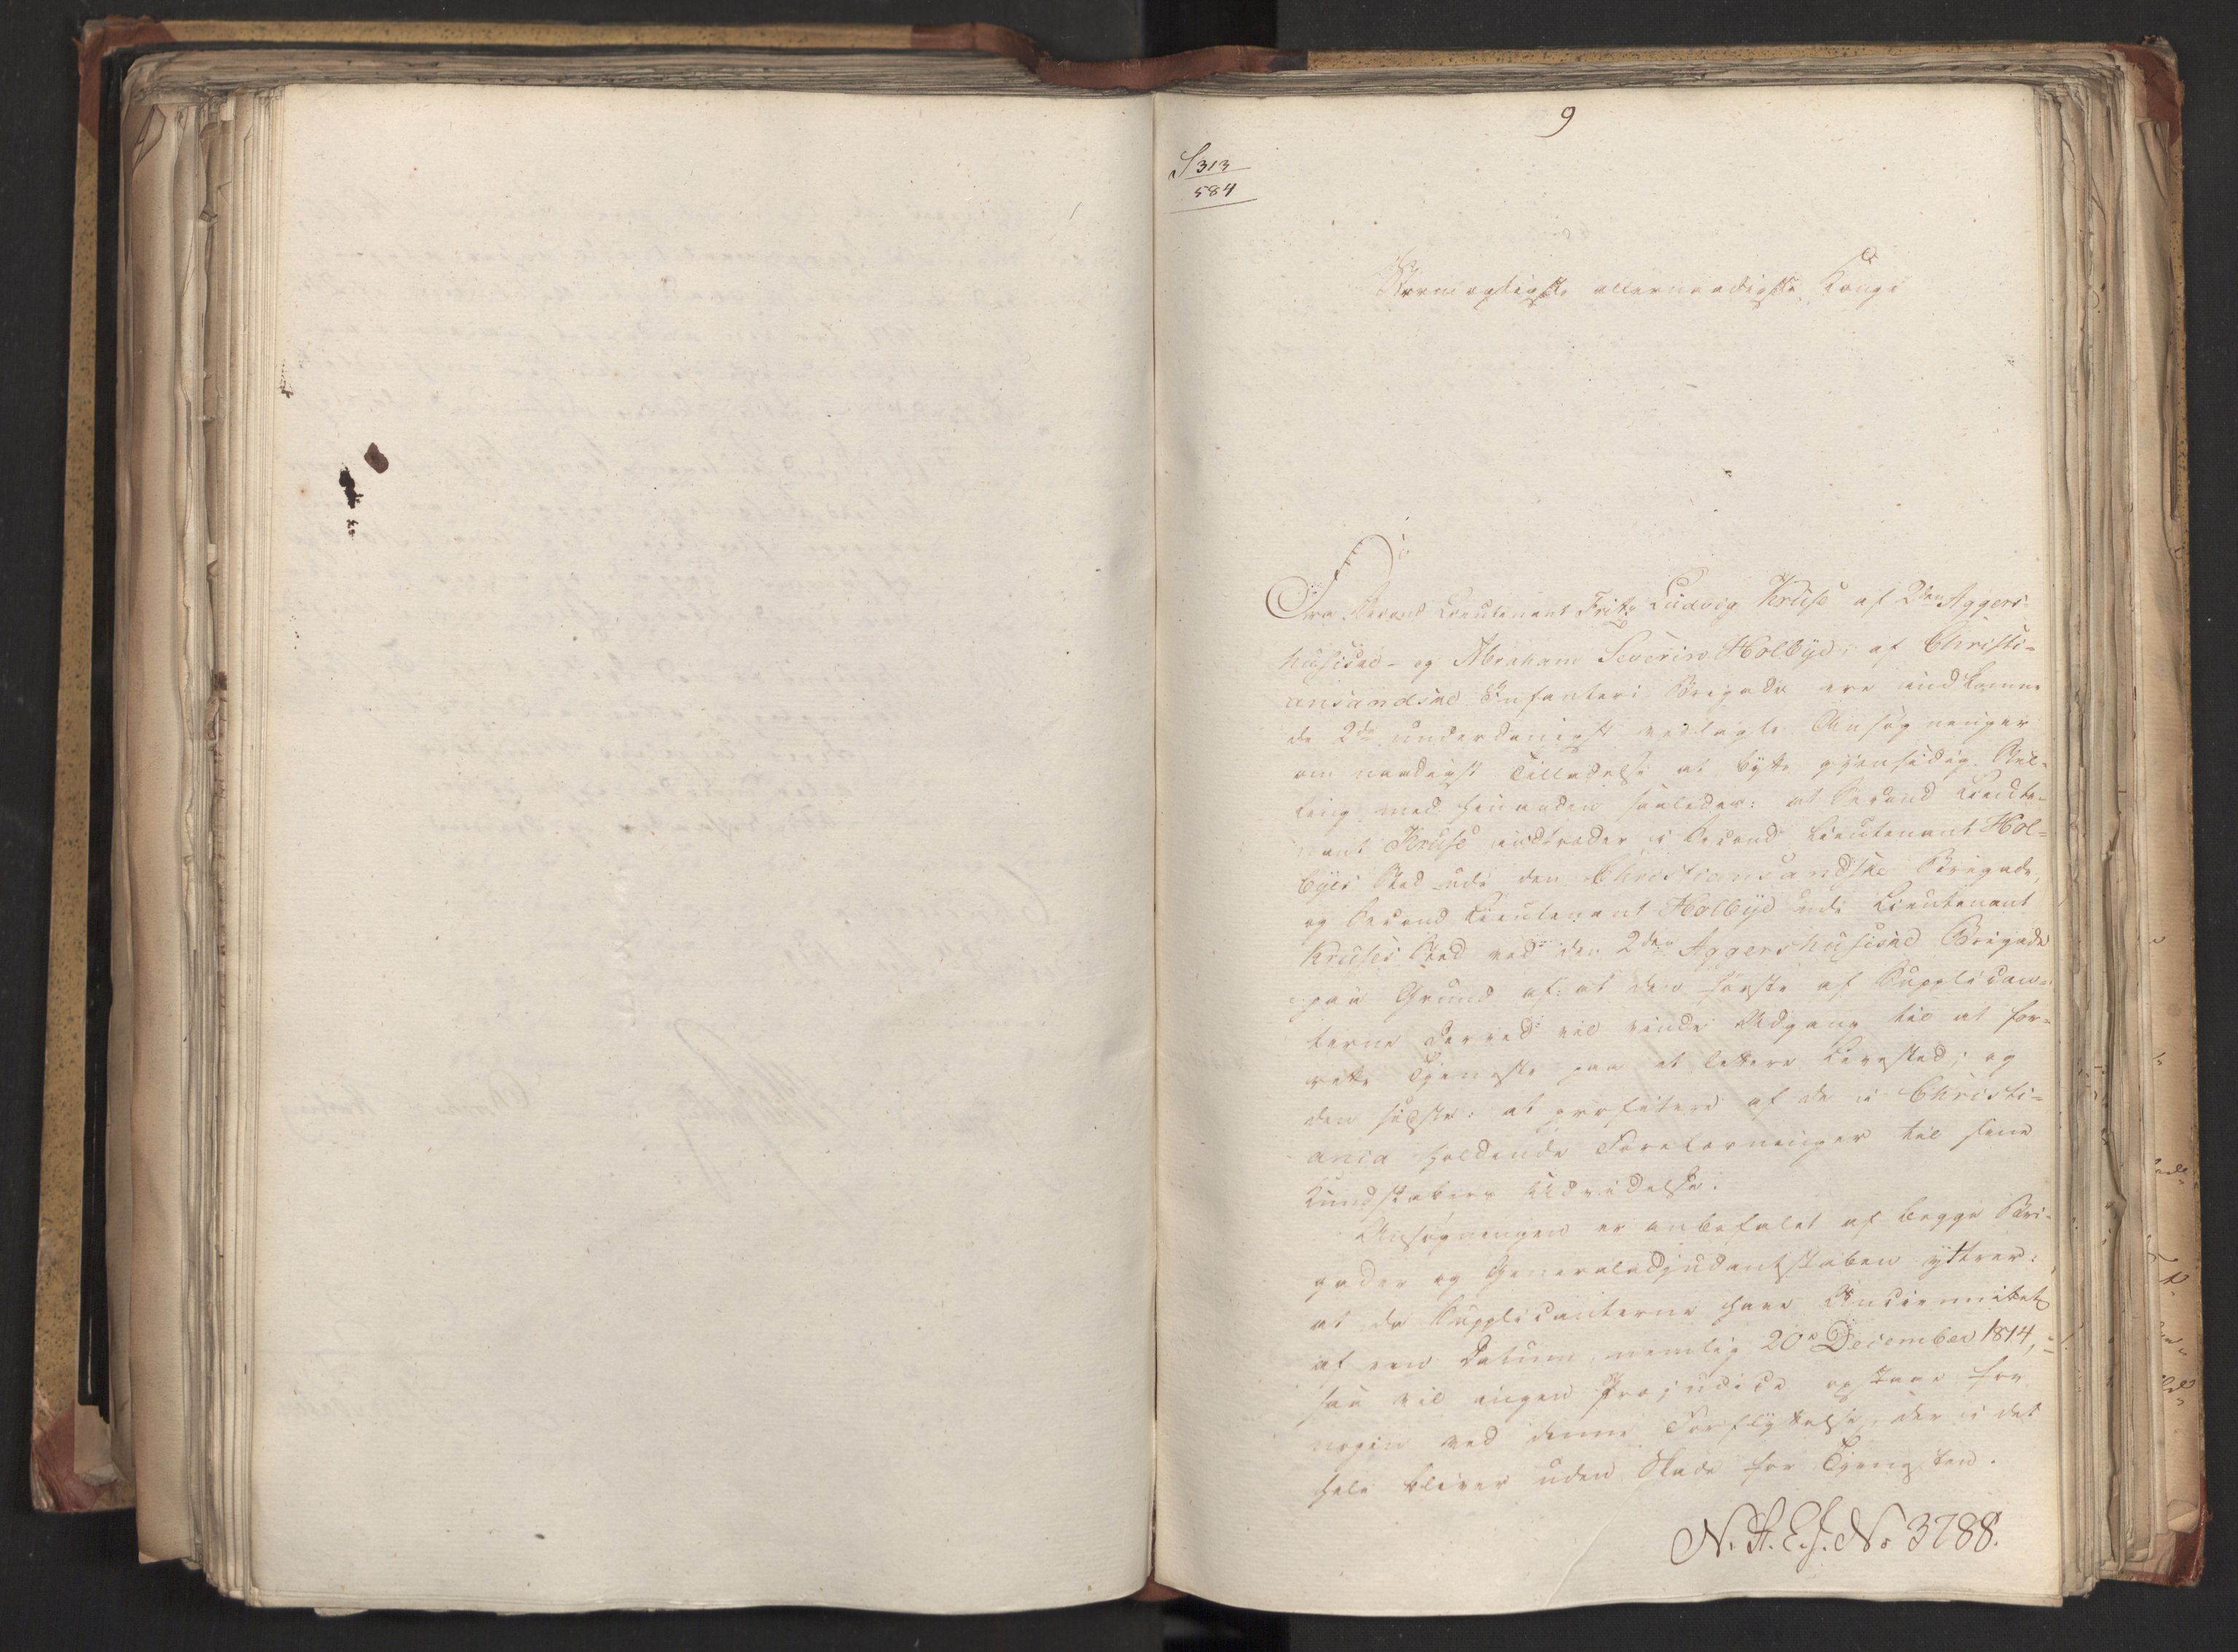 9
S 313
584
Stormægtigste allernaadigste Konge
Fra Second Lieutenant Fritz Ludvig Kruse af 2den Aggers-
husiske- og Abraham Severin Holbye af Christi-
ansandske Infanteri Brigade ere indkomne
de 2de underdanigst vedlagte Ansøgninger
om naadigst Tilladelse at bytte gjensidig Stil-
ling med hinanden saaledes: at Second Lieute-
nant Kruse indtræder i Second Lieutenant Hol-
byes Sted udi den Christiansandske Brigade,
og Second Lieutenant Holbye udi Lieutenant
Kruses Sted ved den 2den Aggershusiske Brigade
paa Grund af: at den første af Supplican-
terne derved vil vinde Adgang til at for-
rette Tjeneste paa et lettere Levested; og
den sidste: at profitere af de i Christi-
ania holdende Forelæsninger til sine
Kundskabers Udvidelse.
Ansøgningen er anbefalet af begge Bri-
gader og Generaladjudantskaben yttrer:
at da Supplicanterne have Anciennitet
af een Datum, nemlig 20de December 1814,
saa vil ingen Præjudice opstaae for
nogen ved denne Forflyttelse, der i det
hele bliver uden Skade for Tjenesten.
N. A. E. J. No 3788.